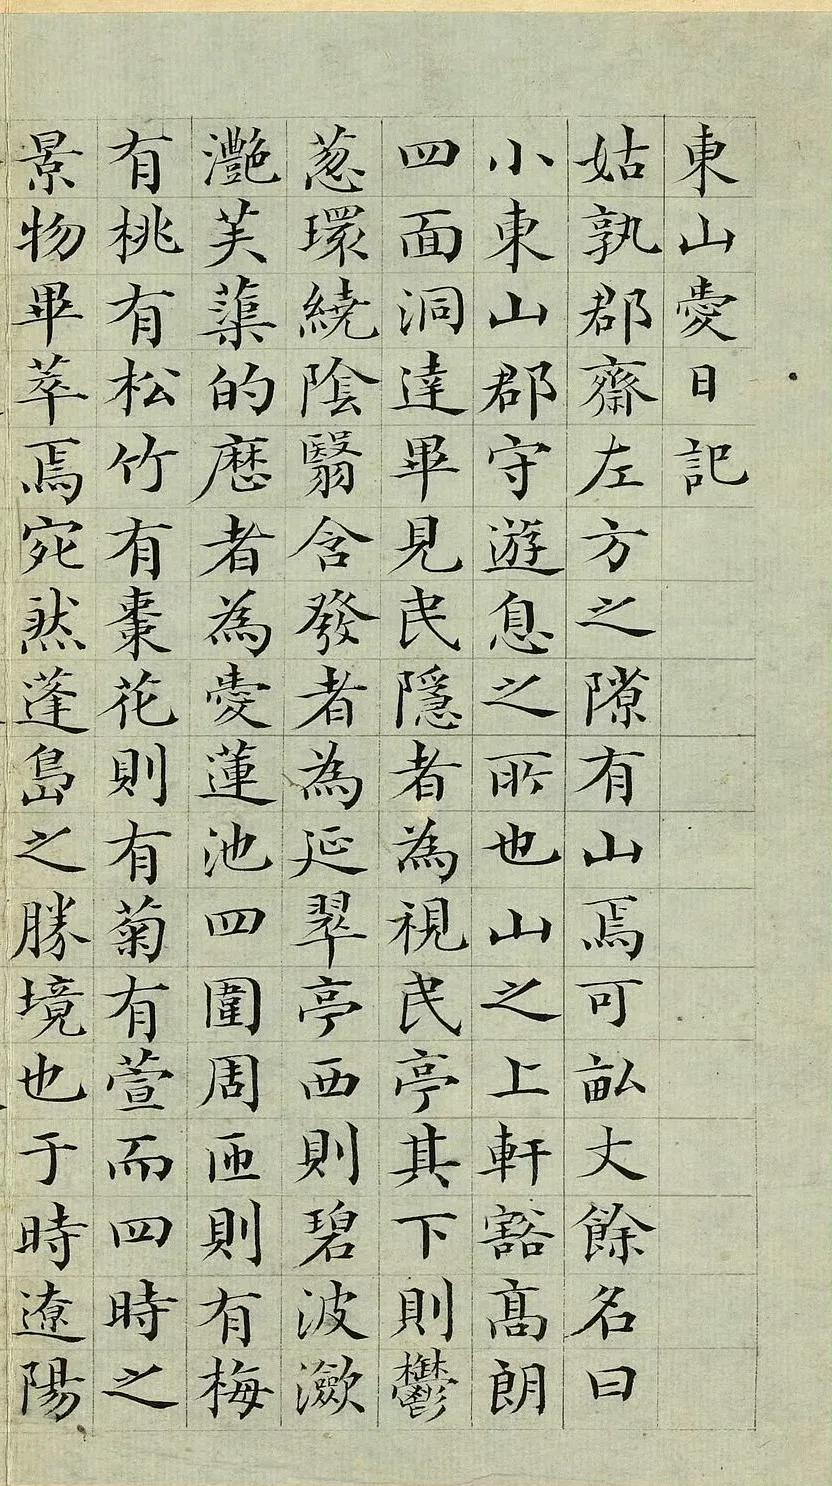 東山愛日記
姑孰郡齋左方之隙有山焉可畝丈餘名曰
小東山郡守遊息之所也山之上軒豁髙朗
四面洞達畢見民隱者為視民亭其下則鬱
葱環繞陰翳含發者為延翠亭西則碧波瀲
灔芙蕖的歷者為愛蓮池四圍周匝則有梅
有桃有松竹有棗花則有菊有萱而四時之
景物畢萃焉宛然蓬島之勝境也于時遼陽